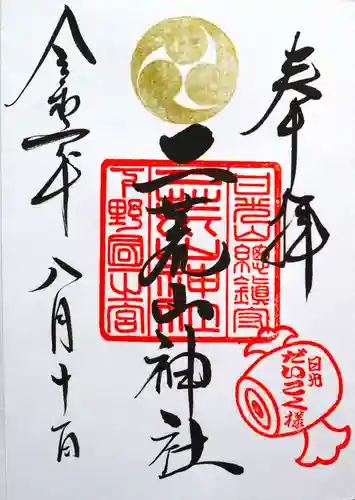 奉拝
二荒山神社
日光山總鎮守
二荒山神社
下野國一宮
日光
だいこく様
令和二年
八月十一日